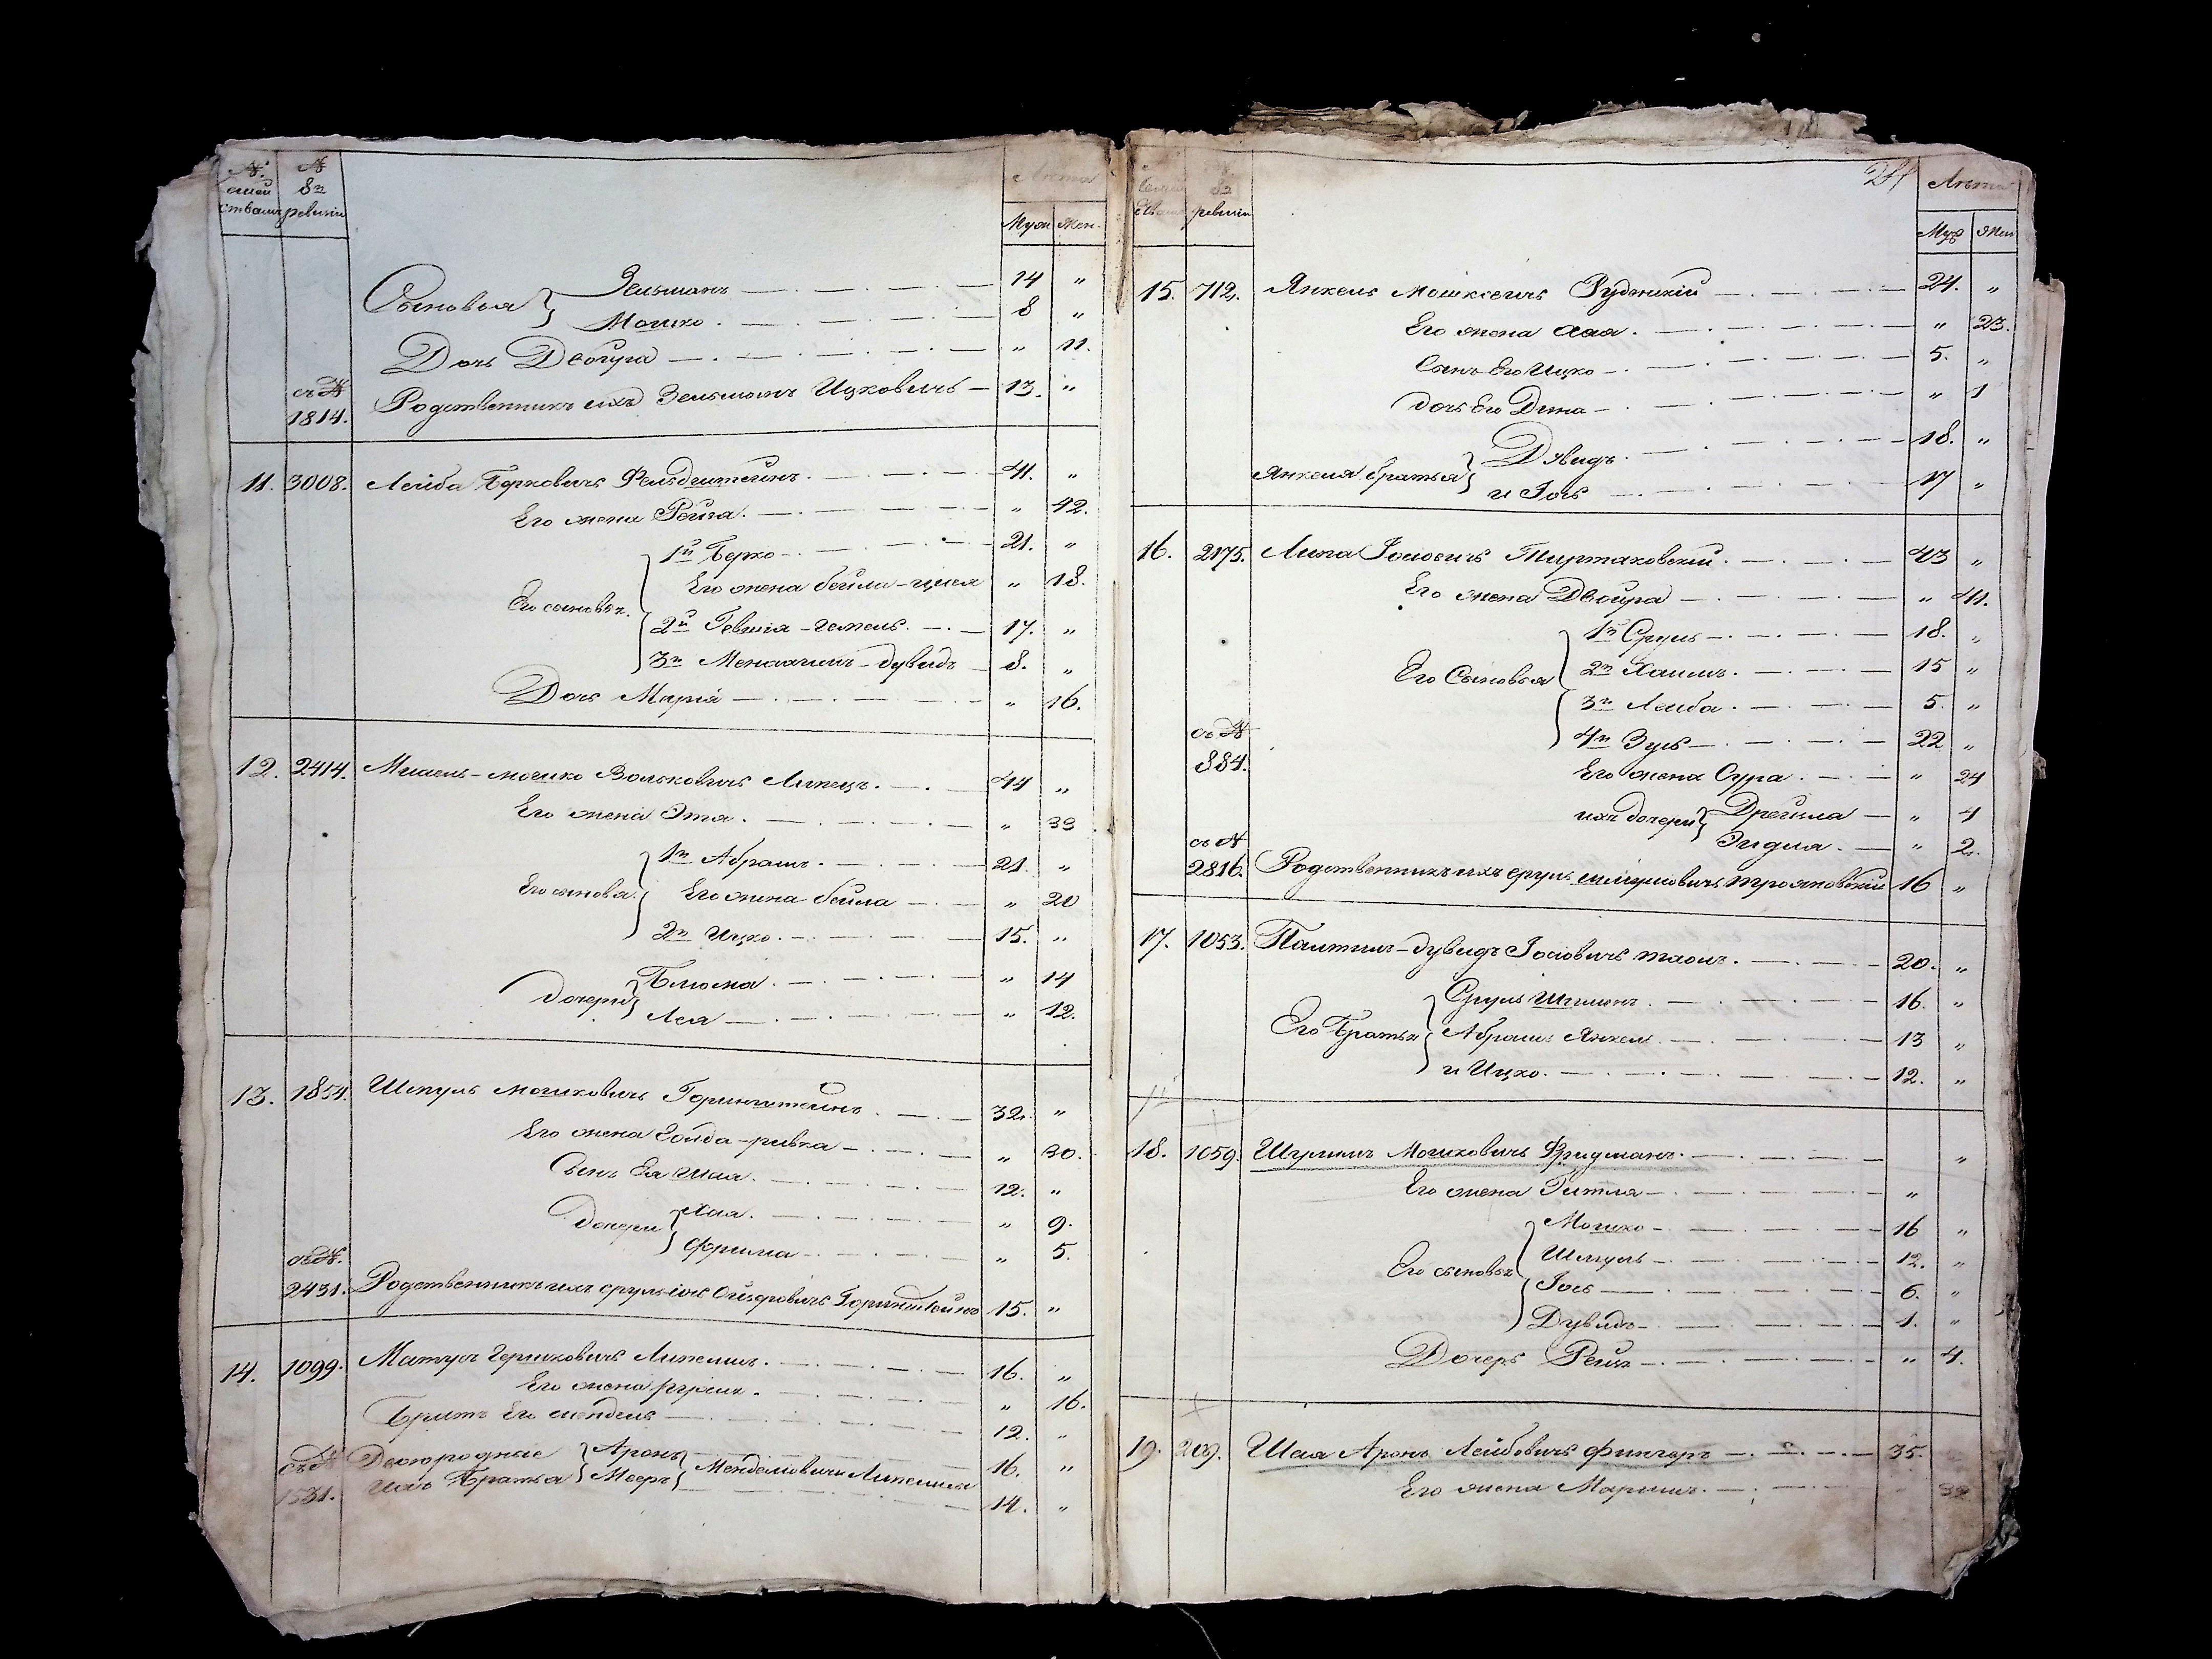 № семействамъ № 8й ревизіи Лѣта
Муж Жен.
Сыновья Зельманъ 14 "
Мошко 8 "
Дочь Двойра " 11.
съ №
1814. Родственникъ ихъ Зельманъ Ицковичъ 13. "
11. 3008. Лейба Берковичъ Фельдштейнъ 41. "
Его жена Рейза " 42.
Его сыновья 1й Берко 21. "
Его жена бейла-цися " 18.
2й Гевшія - 17. "
3й дувидъ 8. "
Дочь Марія " 16.
12. 2414. мошко Вольковичъ Липецъ 44 "
Его жена Эта " 33
Его сыновья 1й Абрамъ 21. "
Его жена бейла " 20
2й Ицко 15. "
Дочери Блюма " 14
Лея " 12.
13. 1854. Шмуль мошковичъ Горинштейнъ 32. "
Его жена ривка " 30.
Сынъ Ея Шая 12. "
Дочери Хая " 9.
Фрима " 5.
съ №.
2431. Родственникъ ихъ сруль-іось Горинштейнъ 15. "
14. 1099. Матусъ Гершковичъ 16. "
Его жена " 16.
Братъ Его мендель 12. "
съ № Двоюродные Аронъ 16. "
1531. Ихъ Братья Мееръ Менделовичи 14. "
Семействамъ 8й ревизіи Лѣта
Муж Жен
15. 712. Янкель мошковичъ Рудницкій 24. "
Его жена Хая " 23.
Сынъ Его Ицко 5. "
дочь Его Дина " 1
Янкеля братья Дувидъ 18. "
и Іось 17 "
16. 2175. Липа Іосіовичъ 43 "
Его жена Двойра " 41.
Его Сыновья 1й Сруль 18. "
2й Хаимъ 15 "
3й Лейба 5. "
съ № 4й Зусь 22 "
884. Его жена Сура " 24
ихъ дочери Дрейзла " 4
съ № Эидля " 2.
2816. Родственникъ ихъ сруль шмуліовичъ трояновскій 16 "
17. 1053. дувидъ Іосіовичъ 20. "
Его Братья Сруль Шимонъ 16. "
Абрамъ Янкель 13 "
и Ицко 12. "
18. 1059. Шулимъ Мошковичъ Фридманъ "
Его жена Гитля "
Его сыновья Мошко 16 "
Шмуль 12. "
Іось 6. "
Дувидъ 1. "
Дочерь Рейза " 4.
19. 209. Шая Аронъ Лейбовичъ Фингеръ 35.
Его жена Маріямъ 32